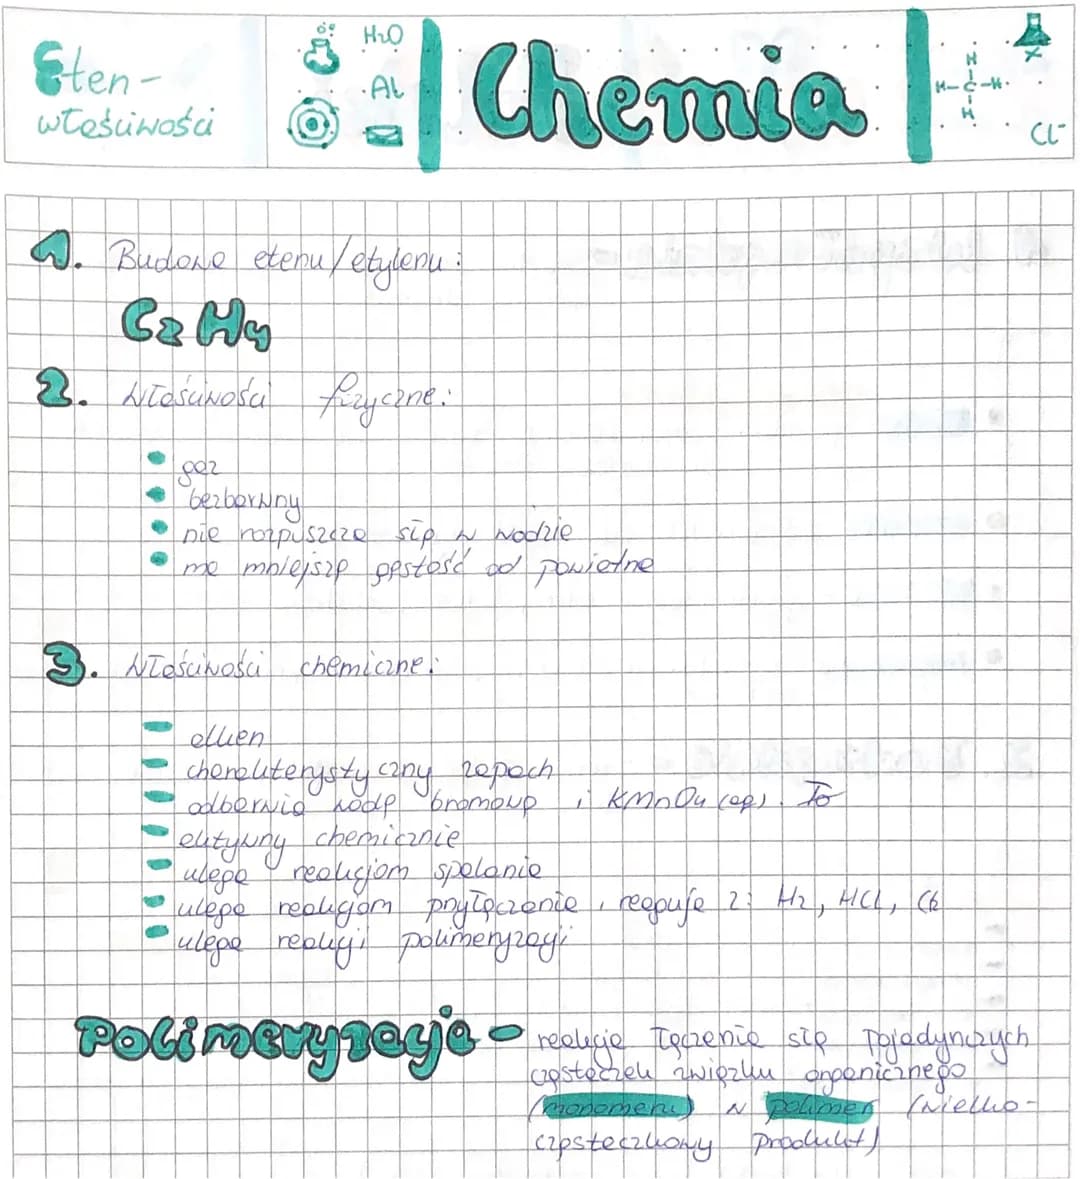 Eten -
właściwości
H2O
Al
Chemia
H
H-C-H
H
Cl-
1. Budowa etenu/etylenu:
C2H4
2. Właściwości fizyczne:
gaz
bezbarwny
nie rozpuszcza się w wodzie
ma mniejszą gęstość od powietrza
3. Właściwości chemiczne:
alken
charakterystyczny zapach
odbarwia wodę bromową i KMnO4 (aq). To
aktywny chemicznie
ulega reakcjom spalania
ulega reakcjom przyłączenia, reaguje z: H2, HCl,
ulega reakcji polimeryzacji
Polimeryzacja - reakcja łączenia się pojedynczych
cząsteczek związku organicznego
(monomeru) w polimer (wielko-
cząsteczkowy produkt)